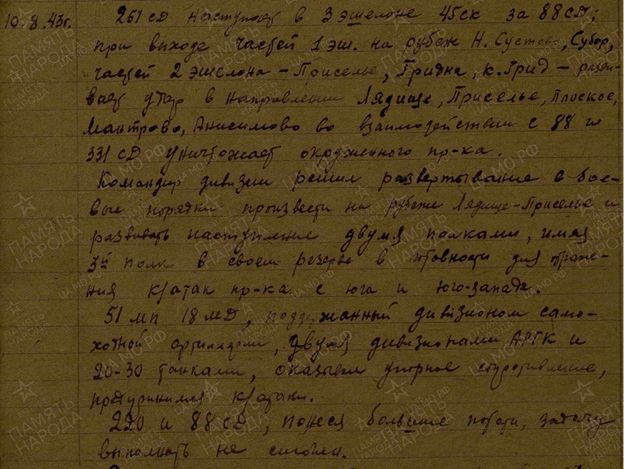 10.8.43г. 251 сд наступает в 3 эшелоне 45ск за 88сд;
при выходе частей 1 эш. на рубеж Н. Сустово, Субор,
частей 2 эшелона - Приселье, Гридна, к. Грид - разви-
вает удар в направлении Лядище, Приселье, Плоское,
Мантрово, Анисимово во взаимодействии с 88 и
331 сд уничтожает окруженного пр-ка.
Командир дивизии решил развертывание в бое-
вые порядки произвести на рубеже Лядище-Приселье и
развивать наступление двумя полками, имея
3й полк в своем резерве в готовности для отраже-
ния к/атак пр-ка с юга и юго-запада.
51 мп 18 мд, поддержанный дивизионом само-
ходной артиллерии, двумя дивизионами АРГК и
20-30 танками, оказывал упорное сопротивление,
предпринимая к/атаки.
220 и 88 сд, понеся большие потери, задачу
выполнить не смогли.
ПАМЯТЬ НАРОДА